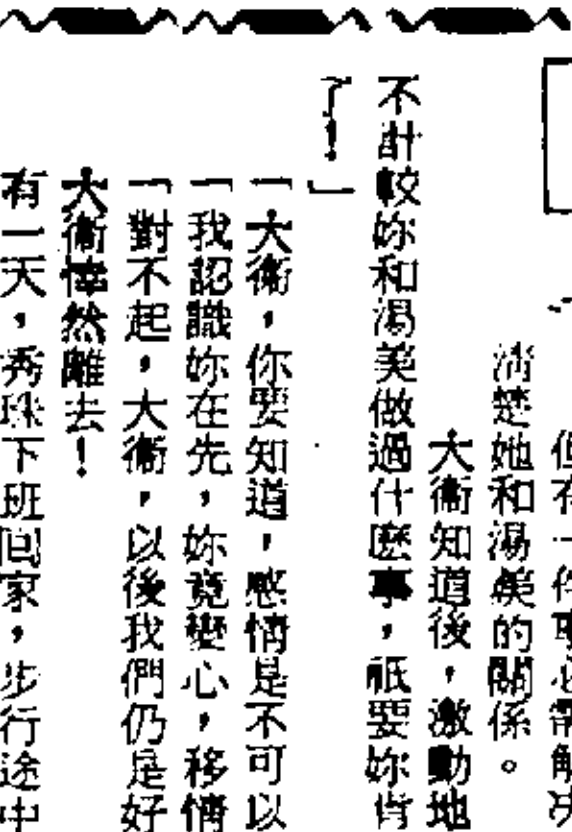 但有一件事必需解决
清楚她和湯美的關係。
大衞知道後，激動地
不計較妳和湯美做過什麼事，祇要妳肯
了！」
「大衞，你要知道，感情是不可以
「我認識妳在先，妳竟變心，移情
「對不起，大衞，以後我們仍是好
大衞悻然離去！
有一天，秀珠下班回家，步行途中